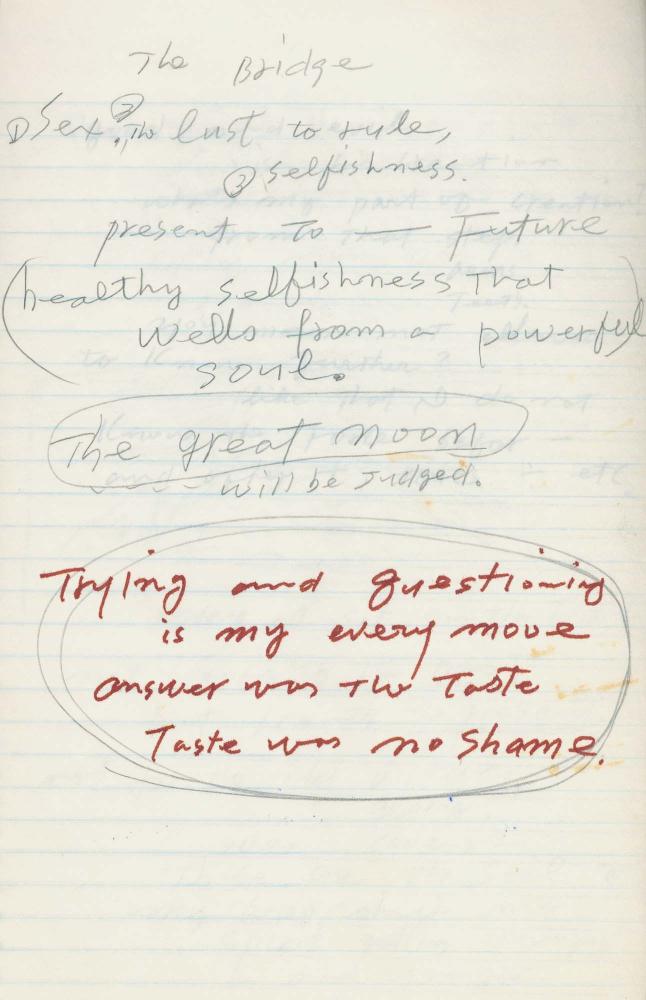 The Bridge
① Sex. ② The lust to rule,
③ selfishness.
present to — Future
(healthy selfishness That
wells from a powerful
soul.)
The great noon
will be Judged.
Trying and questioning
is my every move
answer was the Taste
Taste was no shame.